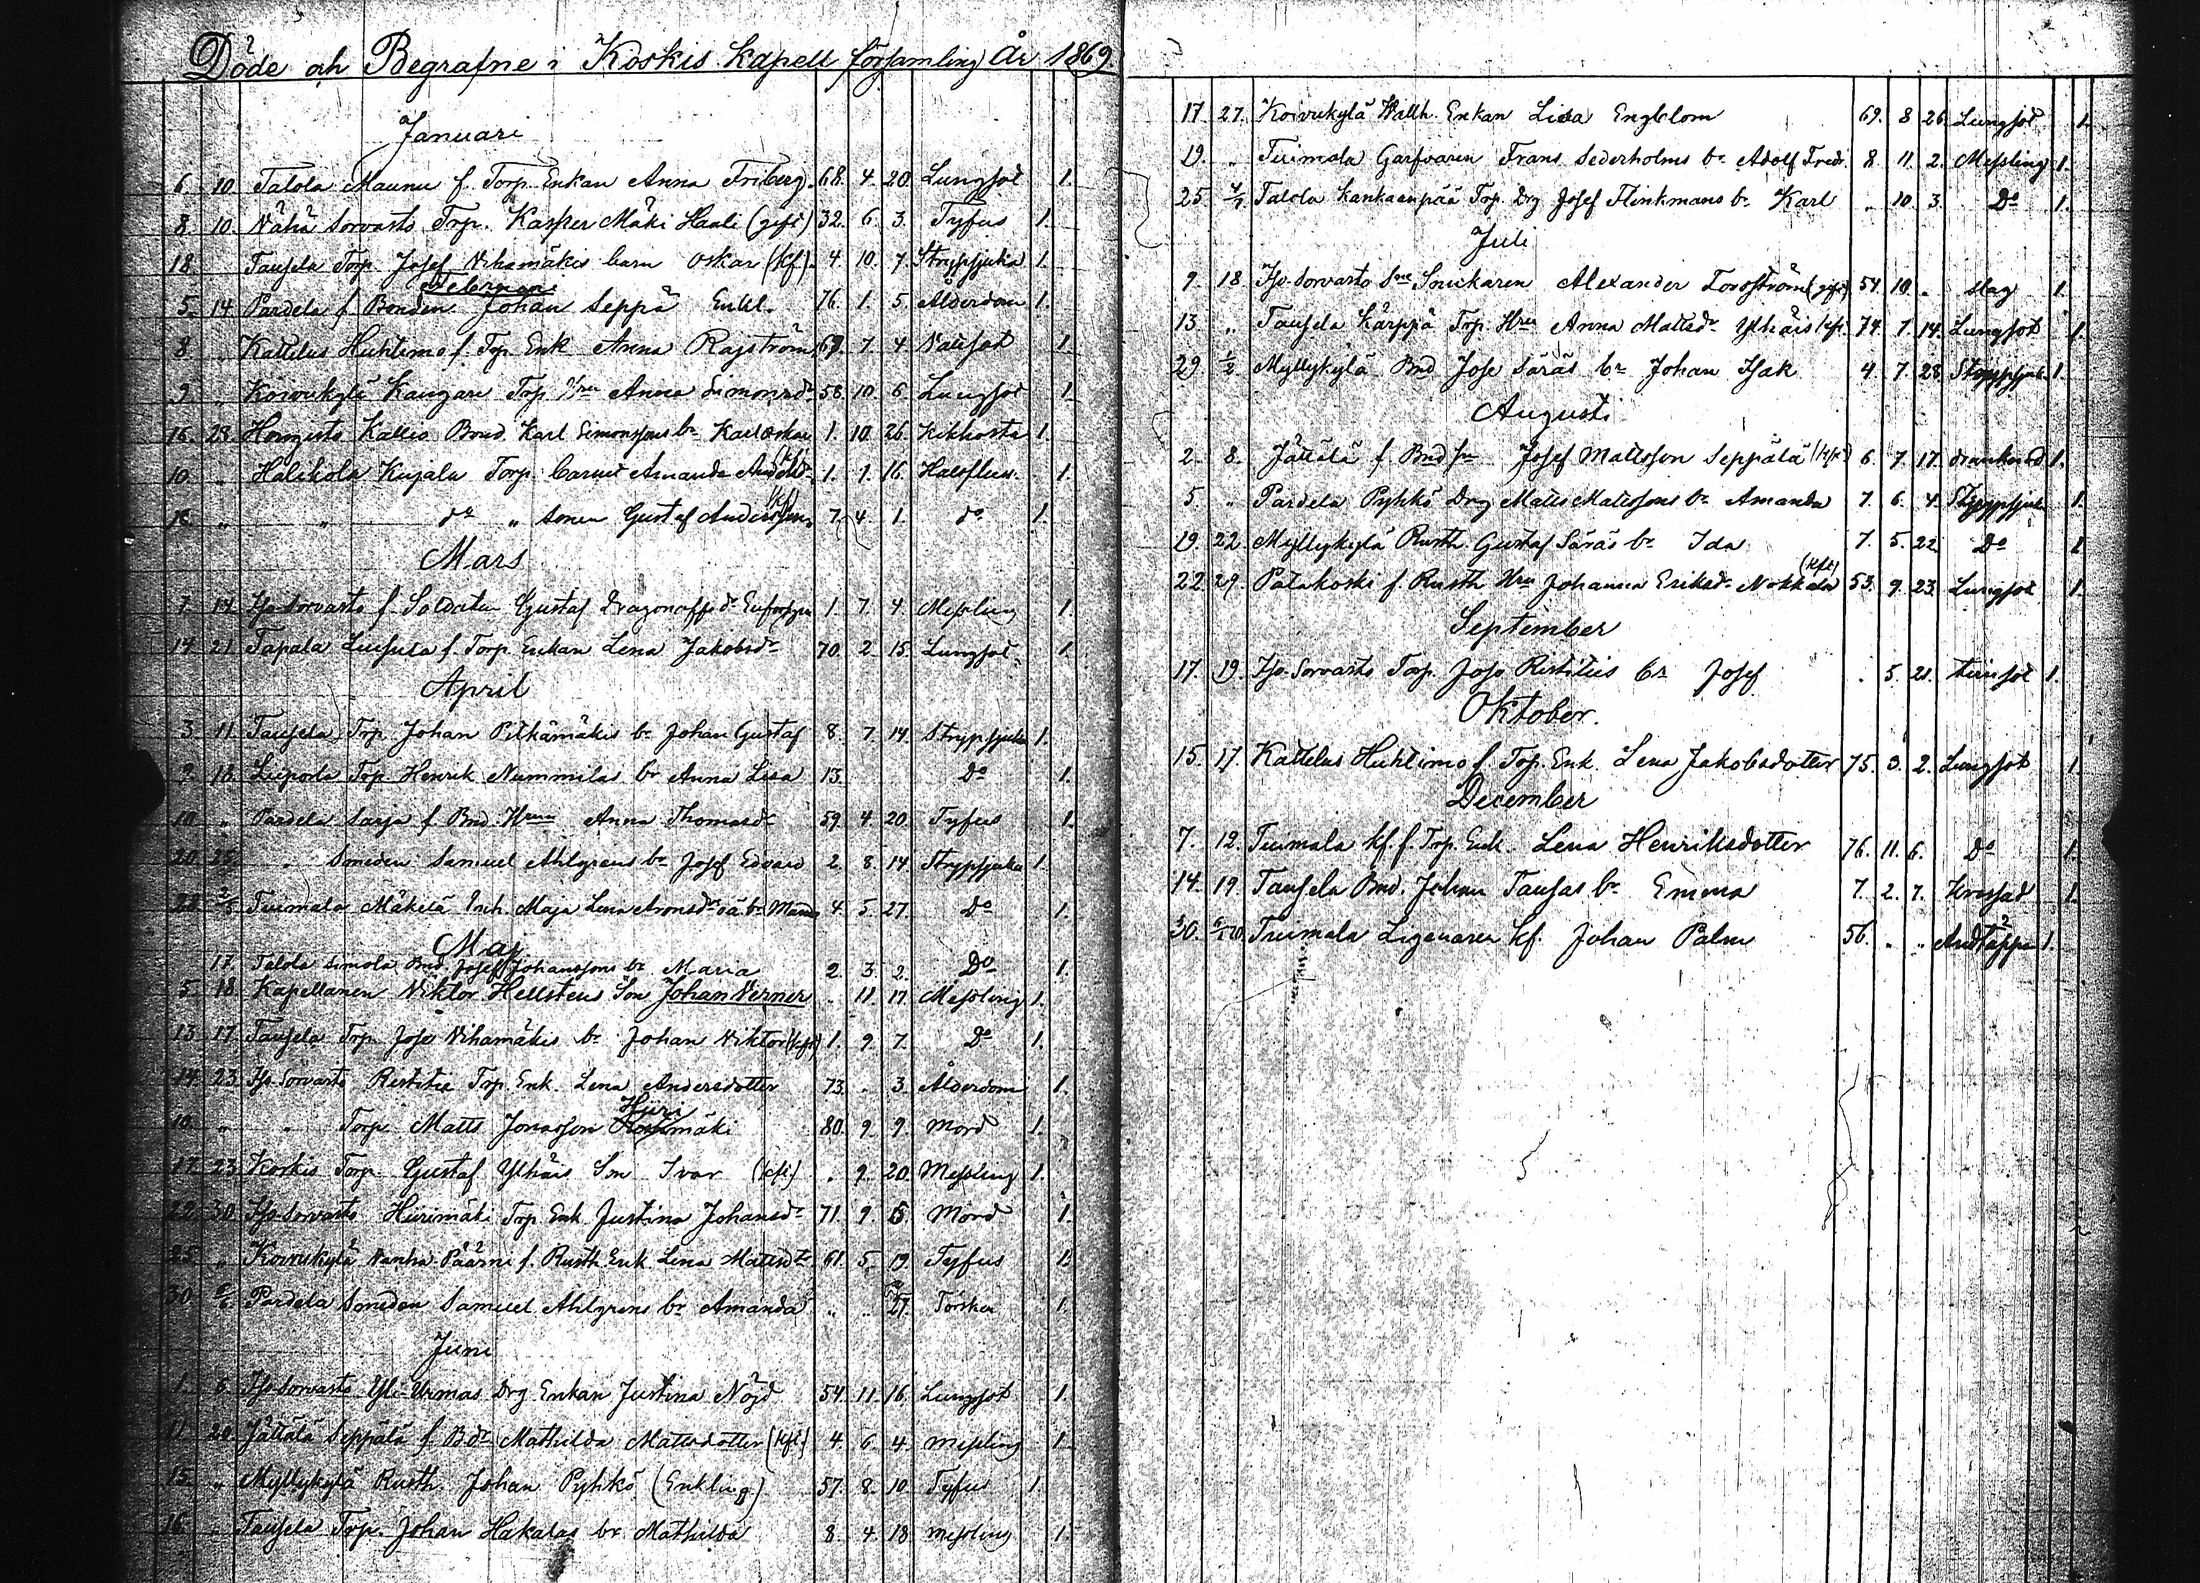 Döde och Begrafne i Koskis Kapell församling År 1869.
Januari
6. 10. Talola Maunu f. Torp. Enkan Anna Friberg. 68. 4. 20. Lungsot 1.
8. 10. Nähä Sorvasto Torp. Kasper Mäki Haali (gift) 32. 6. 3. Tyfus 1.
18. Tausela Torp. Josef Vihamäkis barn Oskar (kf). 4. 10. 7. Strypsjuka 1.
Februari
5. 14. Pardela f. Bonden Johan Seppä Enkl. 76. 1. 5. Ålderdom 1.
8. " Kattelus Huhtimo f. Torp. Enk. Anna Rajström 69. 7. 4. 1.
9. " Koivukylä Kangare Torp. Hru Anna Simonsdr 58. 10. 6. Lungsot 1.
16. 28. Hongisto Kallio Bond. Karl Simonssons br Karl Oskar 1. 10. 26. Kikhosta 1.
10. " Halikola Kujala Torp. barnet Amanda 1. 1. 16. Halsfluss. 1.
" " do " sonen Gustaf Andersson (kf) 7. 4. 1. do 1.
Mars
7. 14. Iso-Sorvasto f. Soldaten Gustaf Dragonoffs dr 1. 7. 4. Messling 1.
14. 21. Tapala Luusula f. Torp. Enkan Lena Jakobsdr 70. 2. 15. Lungsot. 1.
April
3. 11. Tausela Torp. Johan Pitkämäkis br Johan Gustaf 8. 7. 14. Strypsjuka 1.
9. 18. Liipola Torp. Henrik Nummilas br Anna Lisa 13. Do 1.
10. " Pardela Sarja f. Bnd. Hrun Anna Thomasdr 59. 4. 20. Tyfus 1.
20. 25. " Smeden Samuel Ahlgrens br Josef Edvard 2. 8. 14. Strypsjuka 1.
28. 2/5 Tuimala Mäkelä Enk. Maja Lena Aronsdr oä. br 4. 5. 27. Do 1.
Maj
17. Talola Simola Bnd. Josef Johanssons br Maria 2. 3. 2. Do 1.
5. 18. Kapellanen Viktor Hellstens Son Johan Verner . 11. 17. Messling 1.
13. 17. Tausela Torp. Jose Vihamäkis br Johan Viktor (kf) 1. 9. 7. Do 1.
14. 23. Iso-Sorvasto Ristitie Torp. Enk. Lena Andersdotter 73. . 3. Ålderdom 1.
10. " " Torp. Matts Jonasson Hiirimäki 80. 9. 9. Mord 1.
17. 23. Koskis Torp. Gustaf Ylhäis Son Ivar (kf) . 9. 20. Messling 1.
22. 30. Iso-Sorvasto Hiirimäki Torp. Enk. Justina Johansdr 71. 9. Mord 1.
25. " Koivukylä Vanha-Päärni f. Rusth. Enk. Lena Mattsdtr 61. 5. 19. Tyfus 1.
30. 6/6 Pardela Smeden Samuel Ahlgrens br Amanda " " 27. Torsken 1.
Juni
1. 6. Iso-Sorvasto Yli-Urmas Drg. Enkan Justina Nöjd 54. 11. 16. Lungsot 1.
11. 20. Jättälä Seppälä f. Bdr Mathilda Mattsdotter (kf) 4. 6. 4. Messling 1.
15. " Myllykylä Rusth. Johan Pyhkö (Enkling) 57. 8. 10. Tyfus 1.
16. " Tausela Torp. Johan Hakalas br. Mathilda 8. 4. 18. Messling 1.
17. 27. Koivukylä Wallh. Enkan Lisa Engblom 69. 8. 26. Lungsot 1.
19. " Tuimala Garfvaren Frans Sederholms br Adolf Fredr. 8. 11. 2. Messling 1.
25. 4/7 Talola Kankaanpää Torp. Drg. Josef Flinkmans br Karl . 10. 3. Do 1.
Juli
9. 18. Iso-Sorvasto Snickaren Alexander Forsström (gift) 54. 10. . Slag 1.
13. " Tausela Kärppä Torp. Hru Anna Mattsdr Ylhäis (kf) 74. 7. 14. Lungsot 1.
29. 1/8 Myllykylä Bnd Jose Säräs br Johan Isak 4. 7. 28. Strypsjuk. 1.
Augusti
2. 8. Jättälä f. Bnd sn Josef Mattsson Seppälä (kf) 6. 7. 17. 1.
5. " Pardela Pyhkö Drg Matts Mattssons br Amanda 7. 6. 4. Strypsjuka 1.
19. 22. Myllykylä Rusth. Gustaf Säräs br Ida 7. 5. 22. Do 1.
22. 29. Patakoski f. Rusth. Hru Johanna Eriksdr Nokkala (kf) 53. 9. 23. Lungsot 1.
September
17. 19. Iso-Sorvasto Torp. Jose Ristities br Josef . 5. 21. 1.
Oktober.
15. 17. Kattelus Huhtimo f. Torp. Enk. Lena Jakobsdotter 75. 3. 2. Lungsot 1.
December
7. 12. Tuimala kf. f. Torp. Enk. Lena Henriksdotter 76. 11. 6. Do 1.
14. 19. Tausela Bnd. Johan Tausas br Emma 7. 2. 7. 1.
30. Tuimala kf. Johan Palm 56. " " Andtäppa 1.